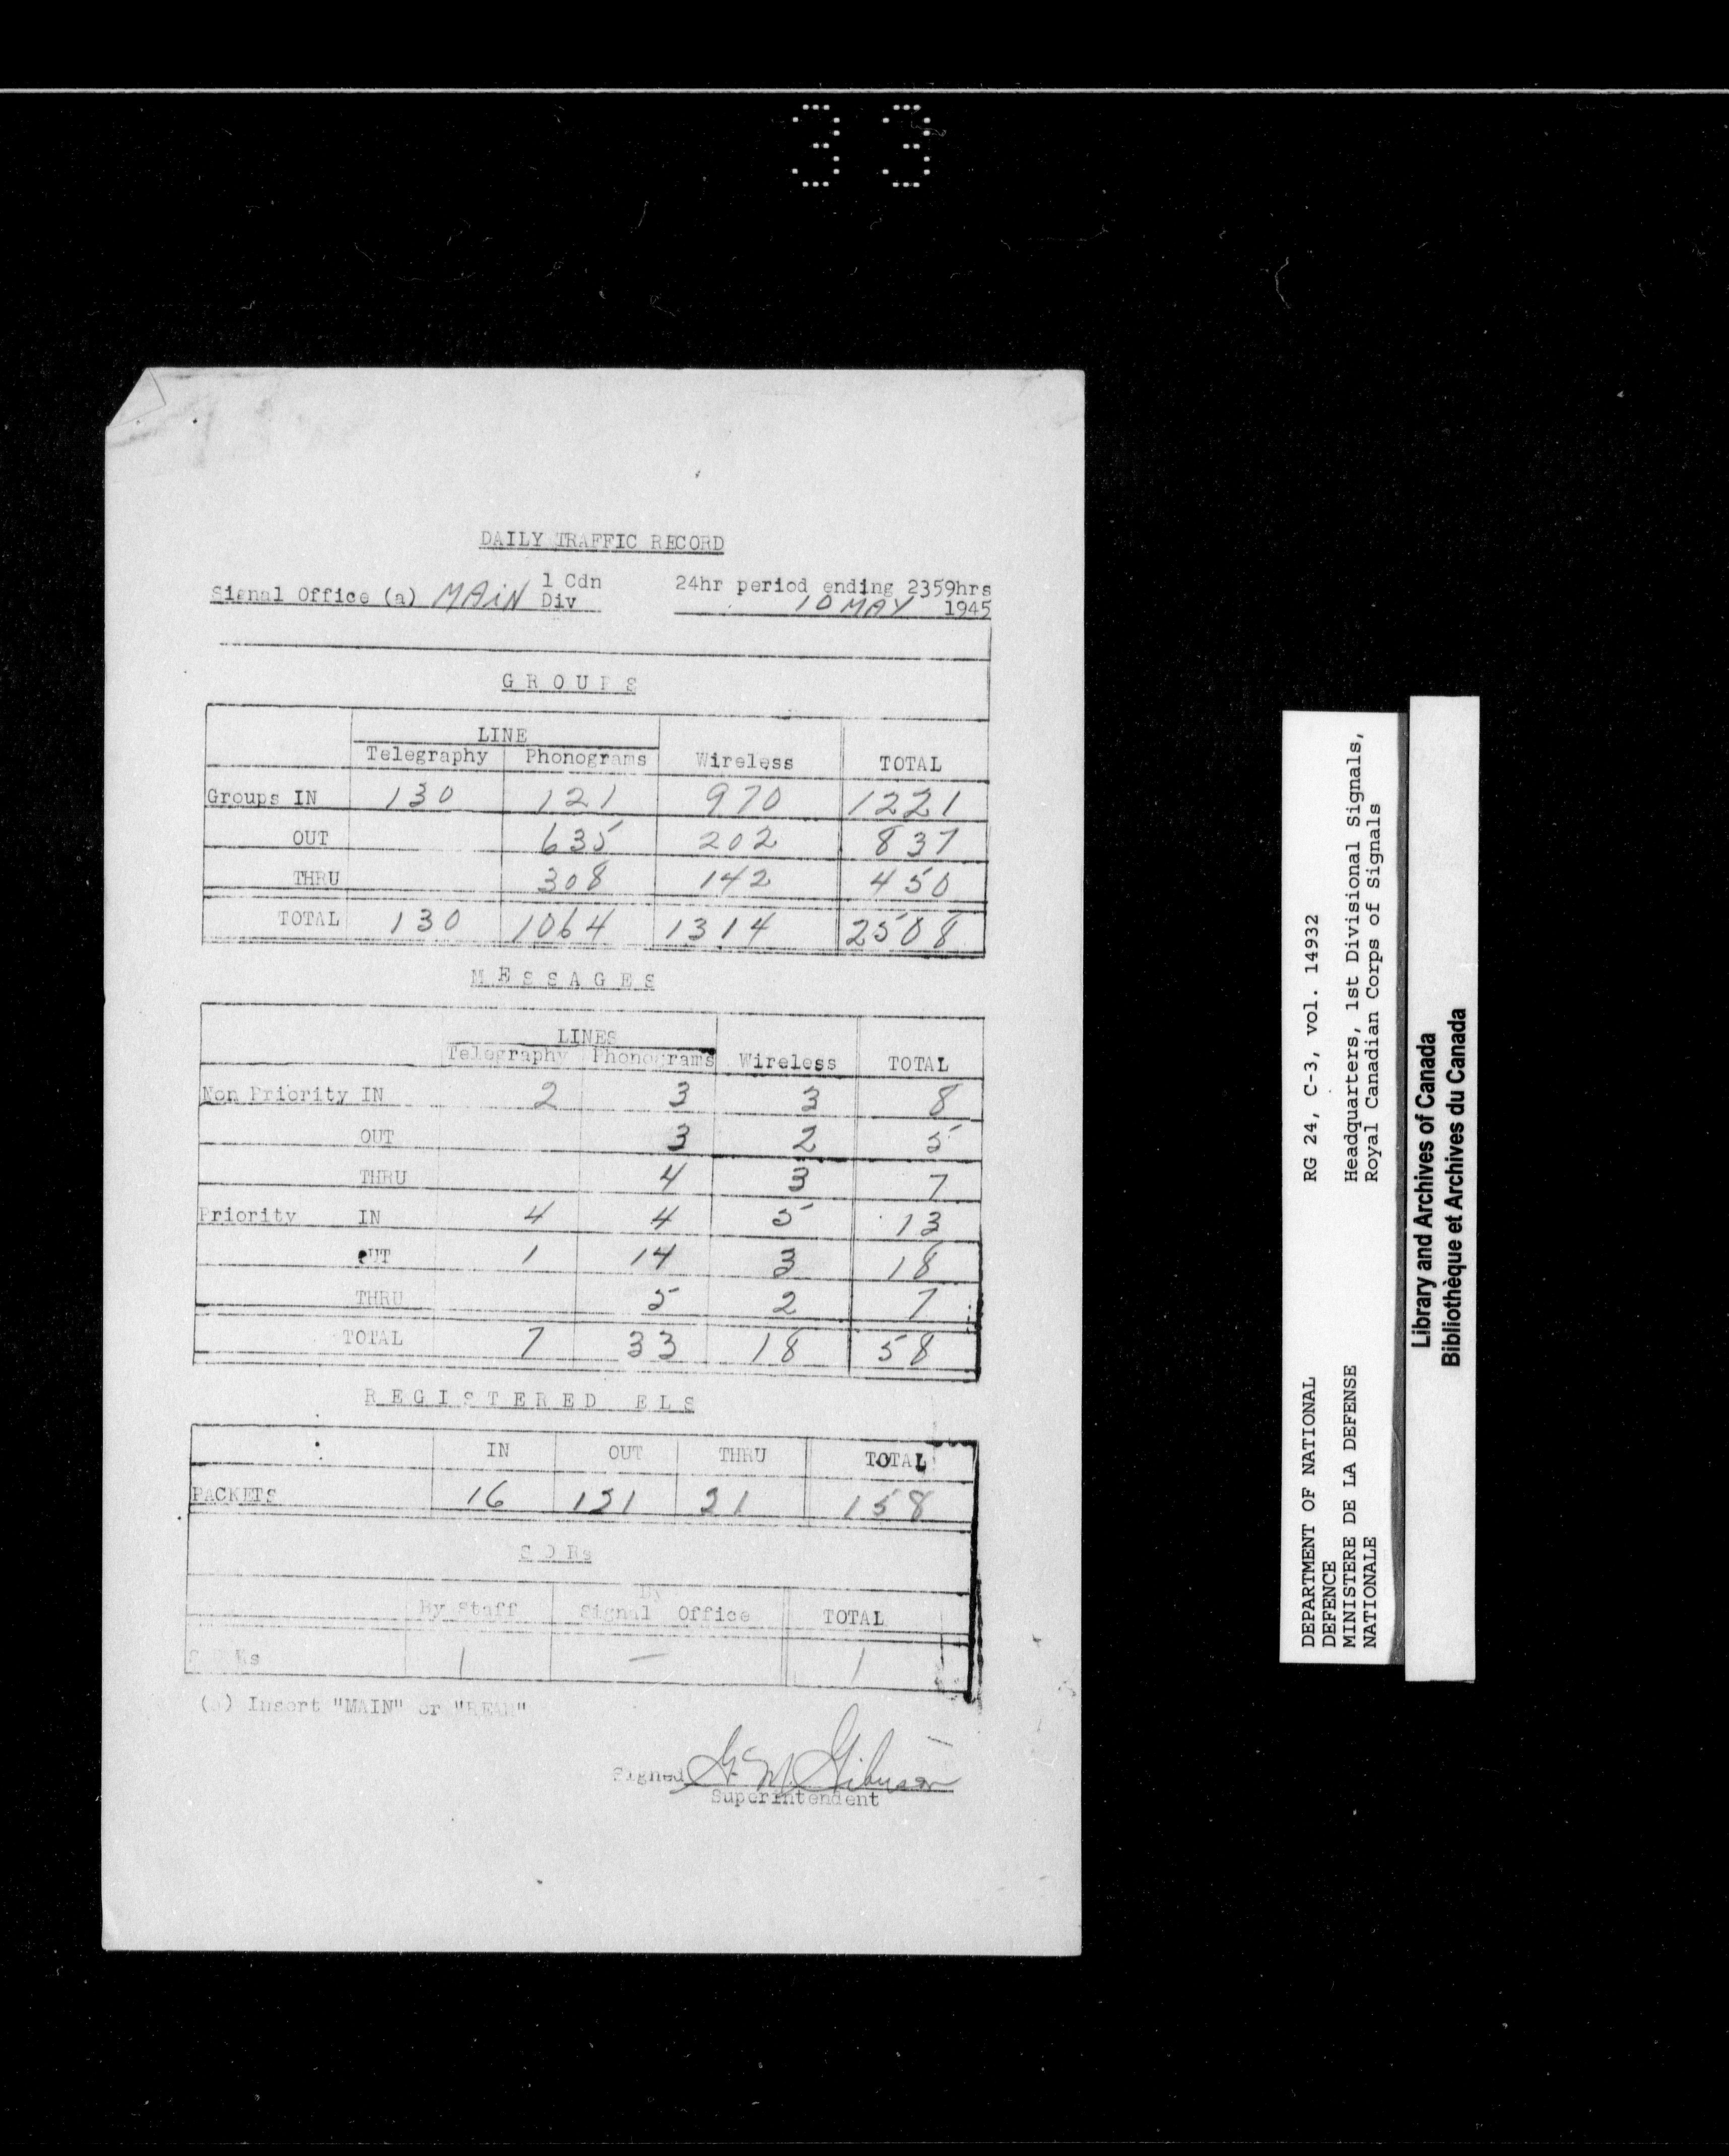 33
DAILY TRAFFIC RECORD
Signal Office (a) MAIN 1 Cdn Div
24hr period ending 2359hrs
10 MAY 1945
GROUPS
LINE
Telegraphy Phonograms Wireless TOTAL
Groups IN 130 121 970 1221
OUT 635 202 837
THRU 308 142 450
TOTAL 130 1064 1314 2508
MESSAGES
LINES
Telegraphy Phonograms Wireless TOTAL
Non Priority IN 2 3 3 8
OUT 3 2 5
THRU 4 3 7
Priority IN 4 4 5 13
OUT 1 14 3 18
THRU 5 2 7
TOTAL 7 33 18 58
REGISTERED ELS
IN OUT THRU TOTAL
PACKETS 16 121 21 158
S D Rs
By Staff By Signal Office TOTAL
1 — 1
(a) Insert "MAIN" or "REAR"
Signed G. M. Gibson
Superintendent
RG 24, C-3, vol. 14932
Headquarters, 1st Divisional Signals,
Royal Canadian Corps of Signals
DEPARTMENT OF NATIONAL
DEFENCE
MINISTERE DE LA DEFENSE
NATIONALE
Library and Archives of Canada
Bibliothèque et Archives du Canada